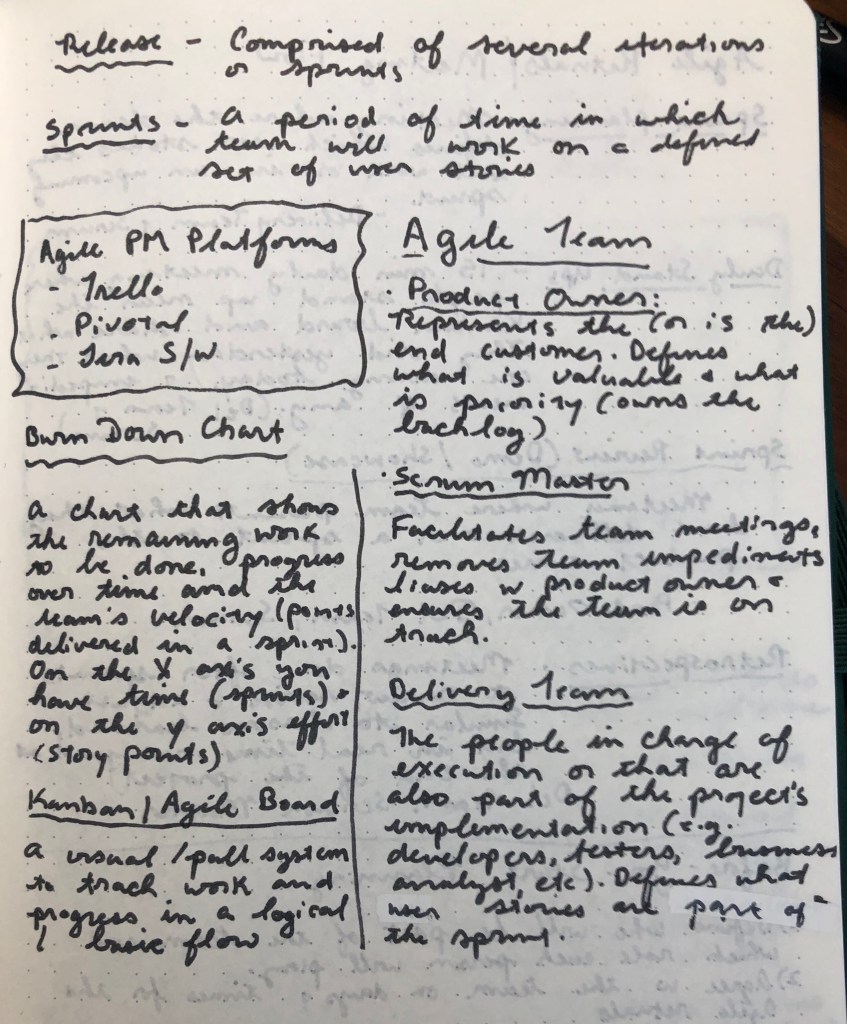 Release - Comprised of several iterations
or sprints
Sprints - A period of time in which
team will work on a defined
set of user stories
Agile PM Platforms
- Trello
- Pivotal
- Jira S/W
Burn Down Chart
A chart that shows
the remaining work
to be done, progress
over time and the
team's velocity (points
delivered in a sprint).
On the X axis you
have time (sprints) &
on the y axis effort
(story points)
Kanban / Agile Board
A visual / pull system
to track work and
progress in a logical
/ basic flow
Agile Team
· Product Owner:
Represents the (or is the)
end customer. Defines
what is valuable & what
is priority (owns the
backlog)
· Scrum Master
Facilitates team meetings,
removes team impediments
liases w product owner &
ensures the team is on
track.
Delivery Team
The people in charge of
execution or that are
also part of the project's
implementation (e.g.
developers, testers, business
analyst, etc). Defines what
user stories are part of
the sprint.